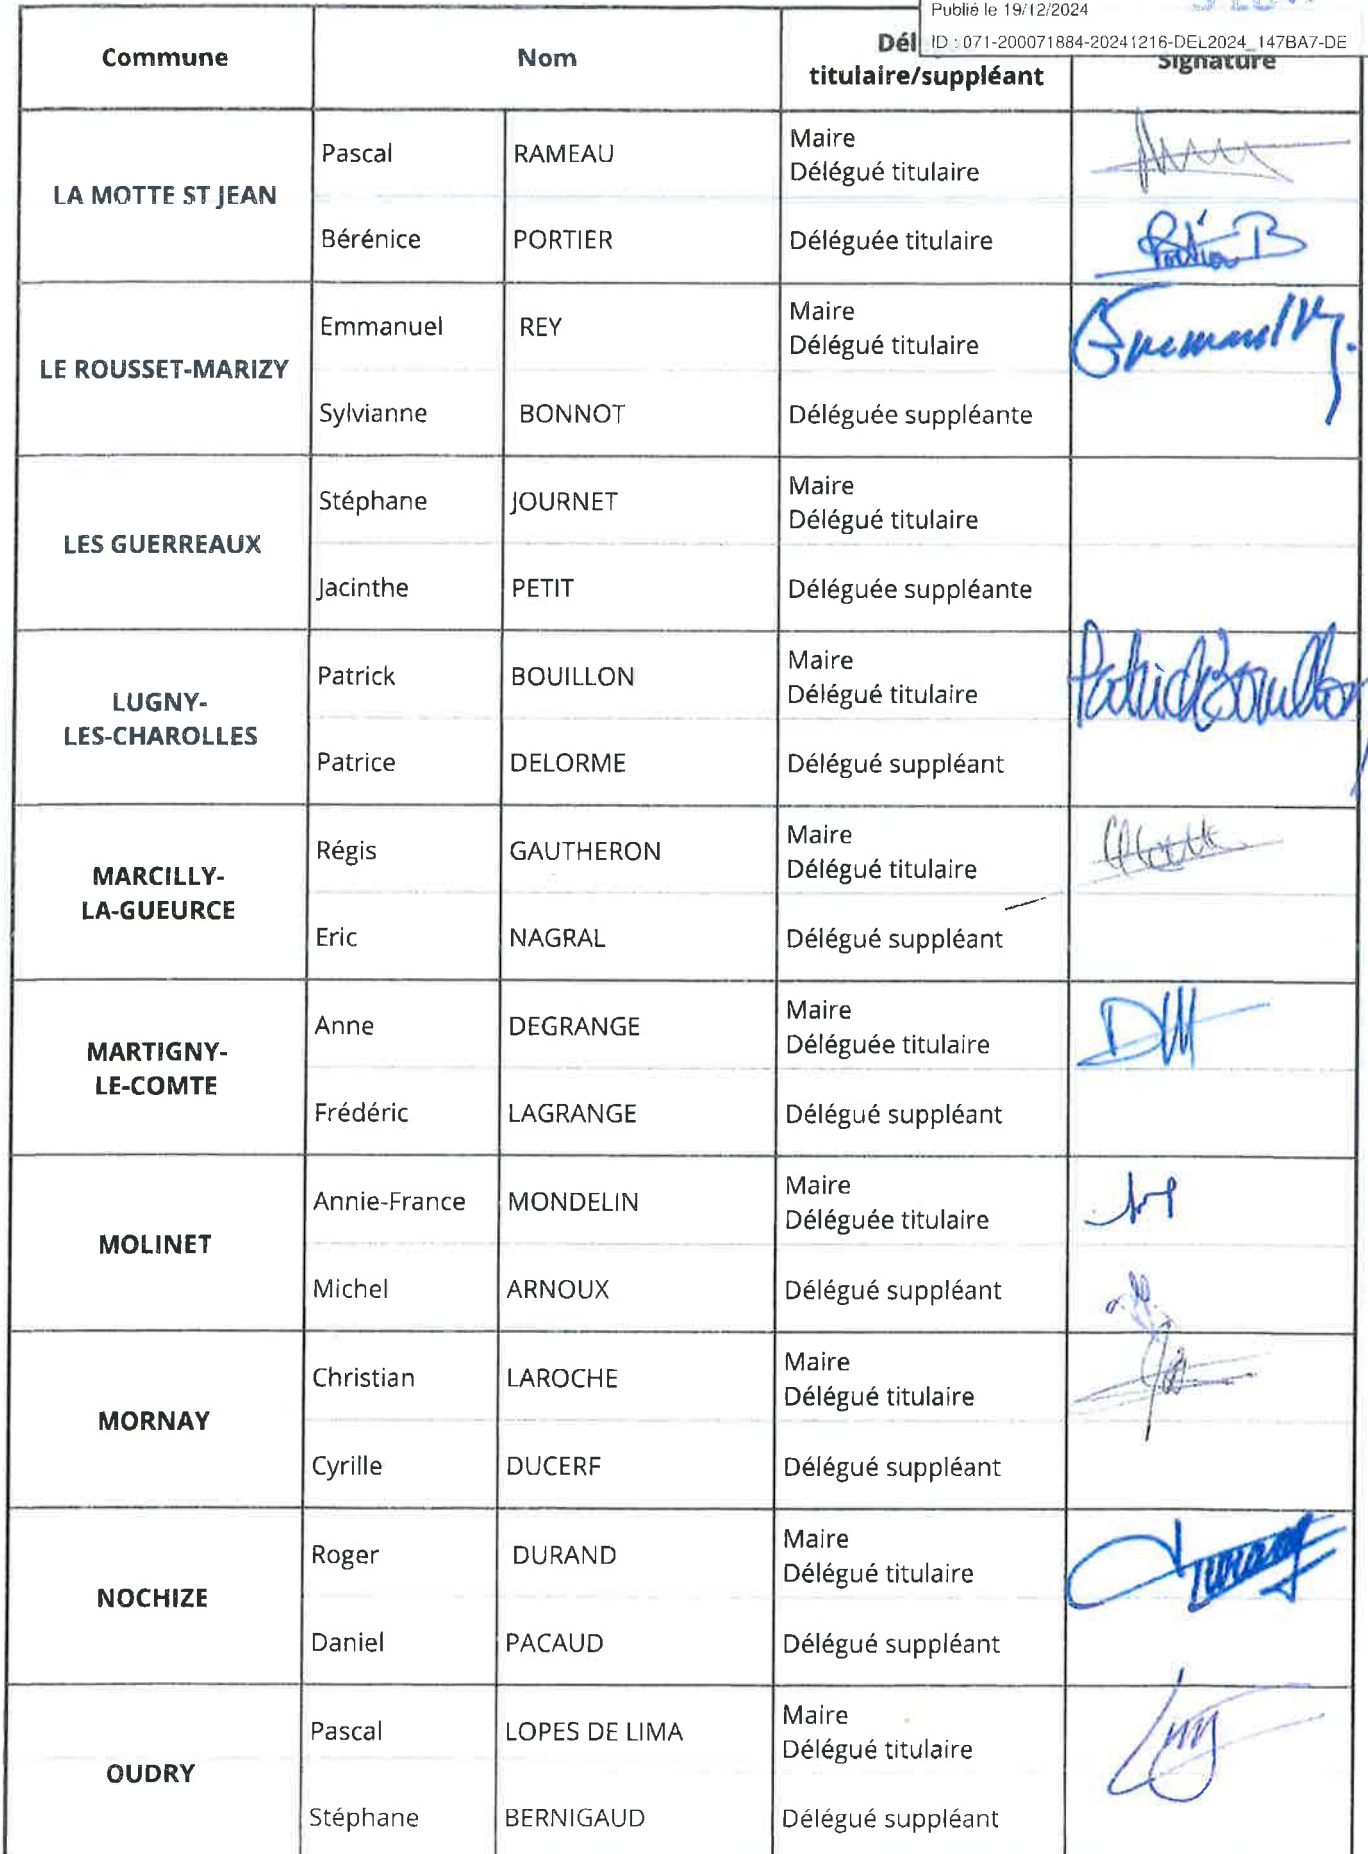 Publié le 19/12/2024
ID : 071-200071884-20241216-DEL2024_147BA7-DE
Commune Nom Dél
titulaire/suppléant Signature
LA MOTTE ST JEAN
Pascal RAMEAU Maire
Délégué titulaire
Bérénice PORTIER Déléguée titulaire Portier B
LE ROUSSET-MARIZY
Emmanuel REY Maire
Délégué titulaire
Sylvianne BONNOT Déléguée suppléante
LES GUERREAUX
Stéphane JOURNET Maire
Délégué titulaire
Jacinthe PETIT Déléguée suppléante
LUGNY-
LES-CHAROLLES
Patrick BOUILLON Maire
Délégué titulaire Patrick Bouillon
Patrice DELORME Délégué suppléant
MARCILLY-
LA-GUEURCE
Régis GAUTHERON Maire
Délégué titulaire
Eric NAGRAL Délégué suppléant
MARTIGNY-
LE-COMTE
Anne DEGRANGE Maire
Déléguée titulaire
Frédéric LAGRANGE Délégué suppléant
MOLINET
Annie-France MONDELIN Maire
Déléguée titulaire
Michel ARNOUX Délégué suppléant
MORNAY
Christian LAROCHE Maire
Délégué titulaire
Cyrille DUCERF Délégué suppléant
NOCHIZE
Roger DURAND Maire
Délégué titulaire Durand
Daniel PACAUD Délégué suppléant
OUDRY
Pascal LOPES DE LIMA Maire
Délégué titulaire
Stéphane BERNIGAUD Délégué suppléant